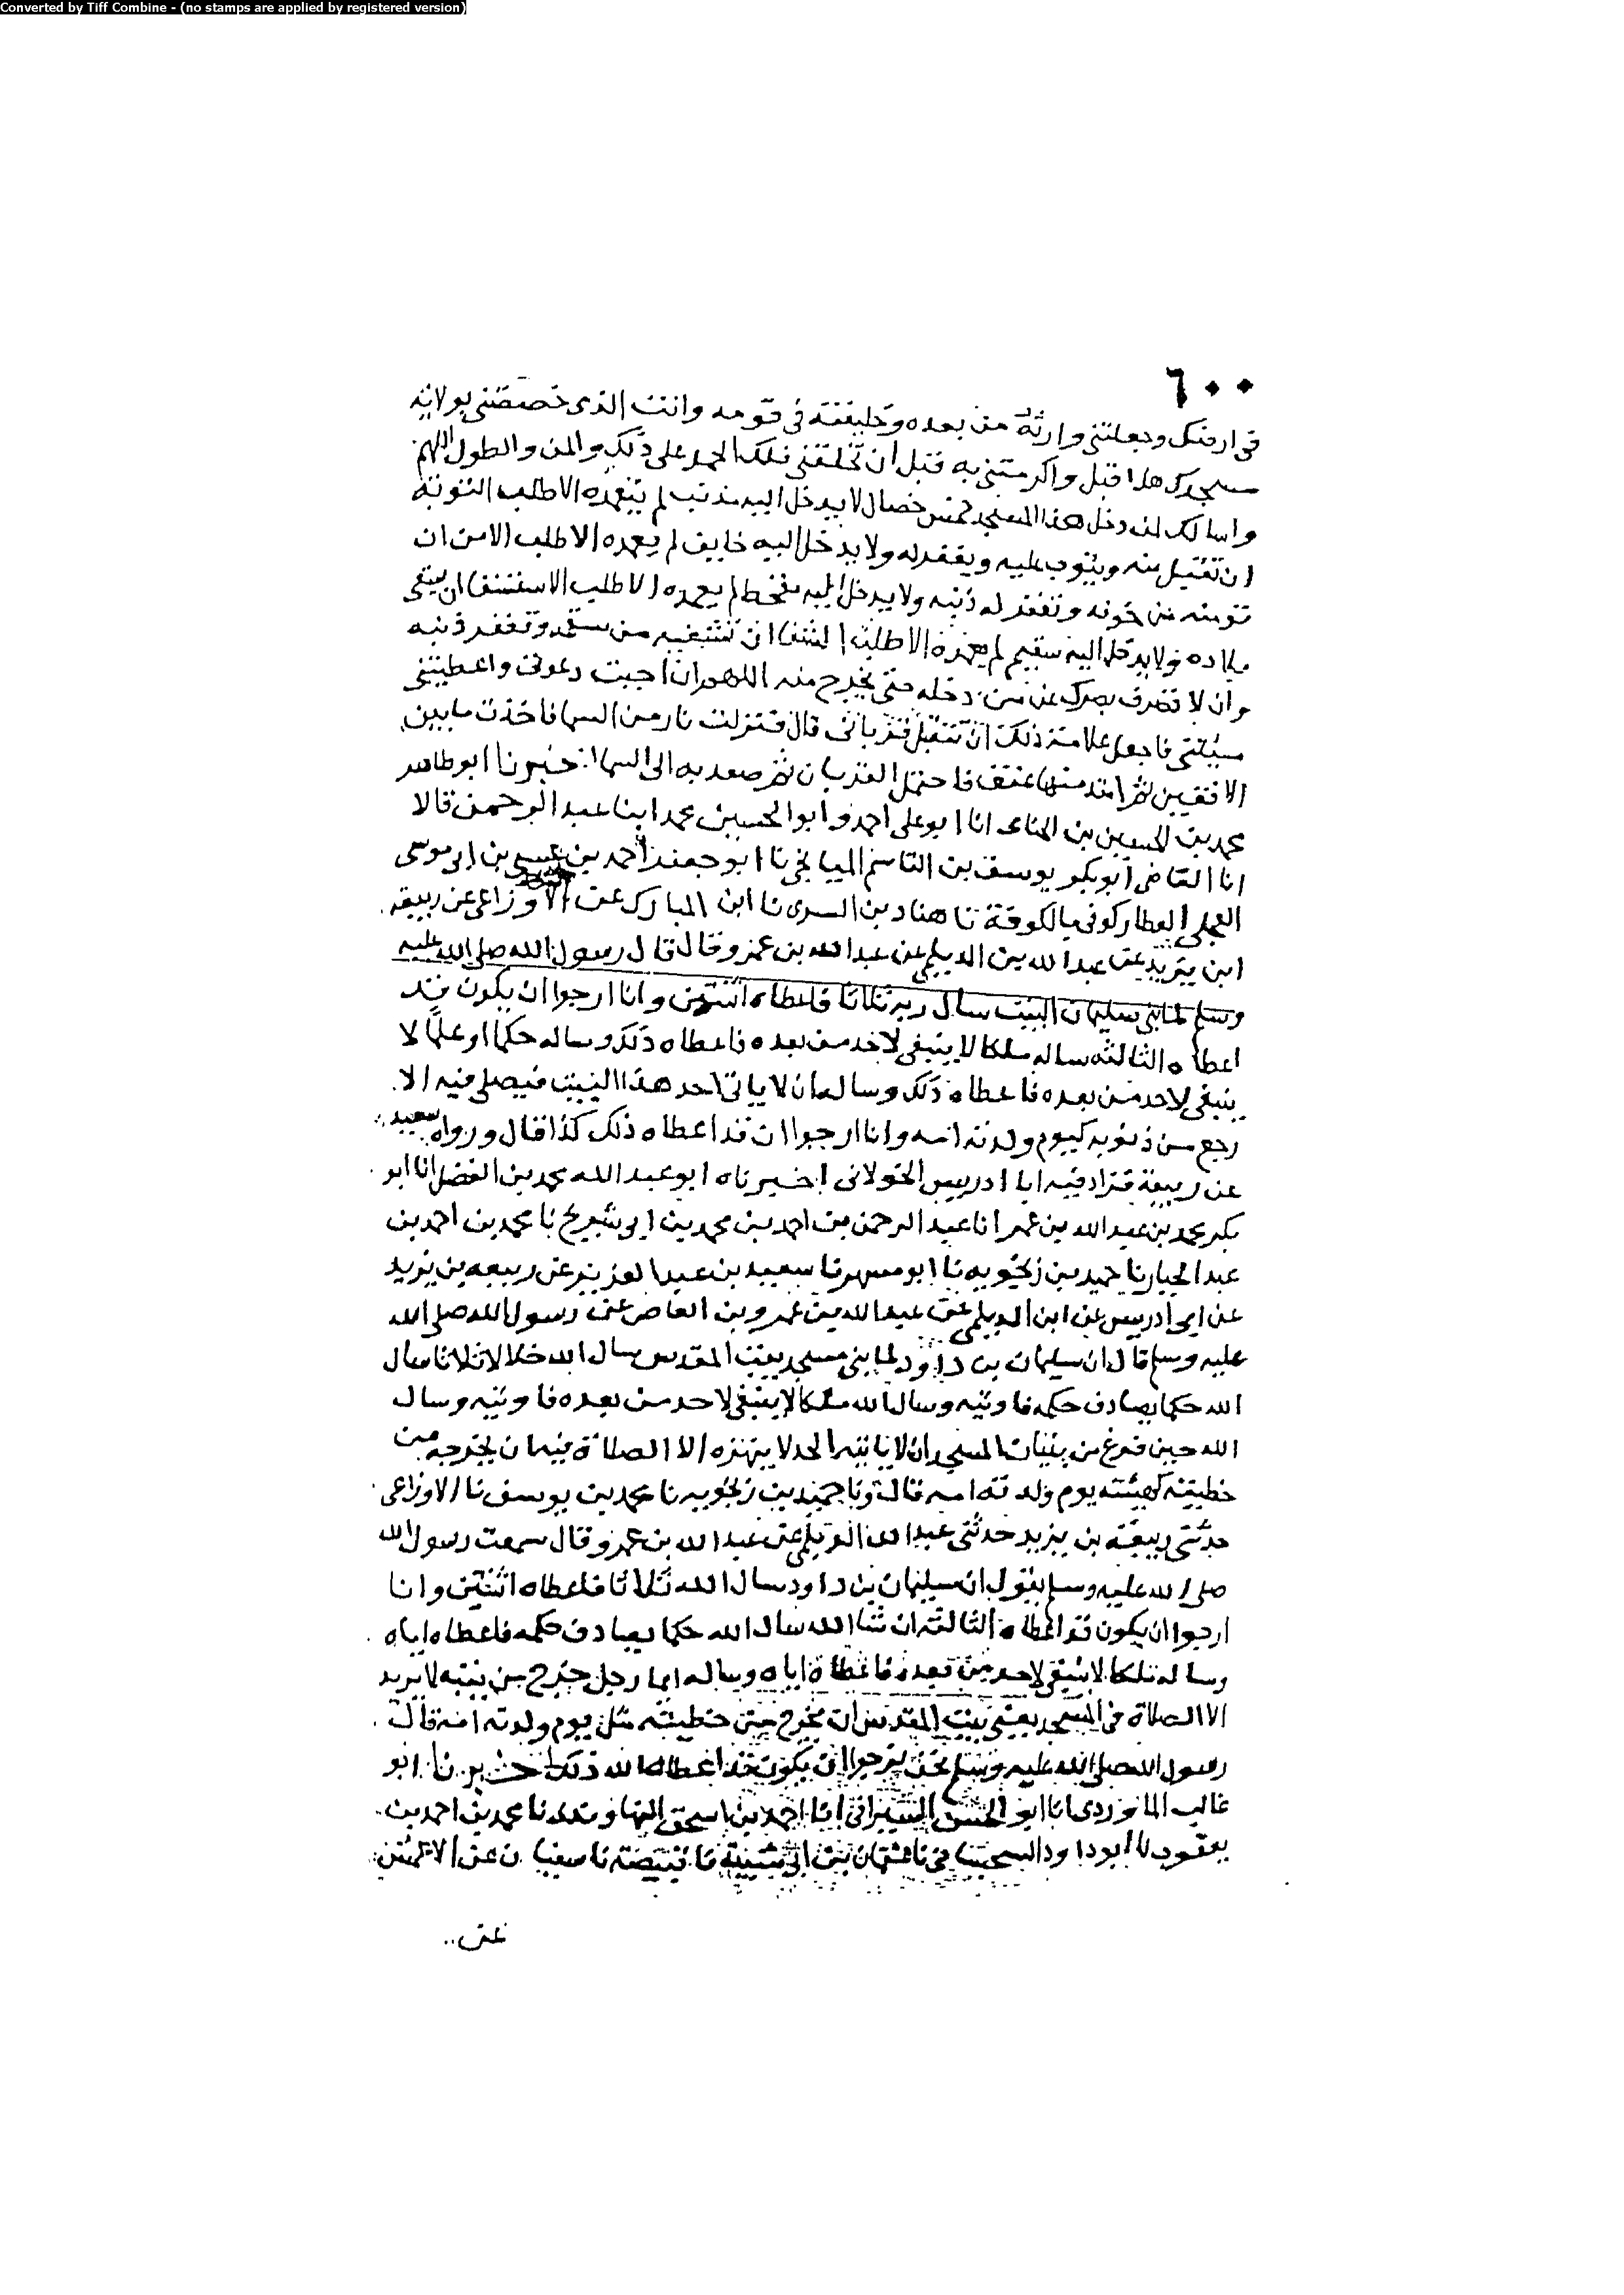 Converted by Tiff Combine - (no stamps are applied by registered version)
٦٠٠
في ارضك وجعلتني وارثه من بعده وخليفته في قومه وانت الذي خصصتني بولاية
مسجدك هذا قبل واكرمتني به قبل ان تخلقني فلك الحمد على ذلك والمن والطول اللهم
واسالك لمن دخل هذا المسجد خمس خصال لا يدخل اليه مذنب لم يتعمده الا طلب التوبة
ان تقبل منه ويتوب عليه ويغفر له ولا يدخل اليه خايف لم يعمده الا طلب الامن ان
تومنه من خوفه وتغفر له ذنبه ولا يدخل اليه مقحط لم يعمده الا طلب الاستسقا ان يسقى
بلاده ولا يدخل اليه سقيم لم يعمده الا طلب الشفا ان تشفيه من سقمه وتغفر ذنبه
وان لا تصرف بصرك عن من دخله حتى يخرج منه اللهم ان اجبت دعوتي واعطيتني
مسئلتي فاجعل علامة ذلك ان تتقبل قرباني قال فنزلت نار من السما فاخذت ما بين
الافقين ثم امتد منها عنق فاحتمل القربان ثم صعد به الى السما خبرنا ابو طاهر
محمد بن الحسين بن الحنائي انا ابو علي احمد وابو الحسين محمد ابنا عبد الرحمن قالا
انا القاضي ابو بكر يوسف بن القاسم الميانجي نا ابو جعفر احمد بن عيسى بن ابي موسى
العجلي العطار كوفي بالكوفة نا هناد بن السري نا ابن المبارك عن الاوزاعي عن ربيعة
ابن يزيد عن عبد الله بن الديلمي عن عبد الله بن عمرو قال قال رسول الله صلى الله عليه
وسلم لما بنى سليمان البيت سال ربه ثلاثا فاعطاه اثنتين وانا ارجوا ان يكون قد
اعطاه الثالثه ساله ملكا لا ينبغي لاحد من بعده فاعطاه ذلك وساله حكما او علما لا
ينبغي لاحد من بعده فاعطاه ذلك وساله ان لا ياتي احد هذا البيت فيصلي فيه الا
رجع من ذنوبه كيوم ولدته امه وانا ارجوا ان قد اعطاه ذلك كذا قال ورواه سعيد
عن ربيعة فزاد فيه ابا ادريس الخولاني اخبرناه ابو عبد الله محمد بن الفضل انا ابو
بكر محمد بن عبد الله بن عمر انا عبد الرحمن بن احمد بن محمد بن ابي شريح نا محمد بن احمد بن
عبد الجبار نا حميد بن زنجويه نا ابو مسهر نا سعيد بن عبد العزيز عن ربيعه بن يزيد
عن ابي ادريس عن ابن الديلمي عن عبد الله بن عمرو بن العاص عن رسول الله صلى الله
عليه وسلم قال ان سليمان بن داود لما بنى مسجد بيت المقدس سال الله خلالا ثلاثا سال
الله حكما يصادف حكمه فاوتيه وسال الله ملكا لا ينبغي لاحد من بعده فاوتيه وسال
الله حين فرغ من بنيان المسجد ان لا ياتيه احد لا ينهزه الا الصلاة فيه ان يخرجه من
خطيئته كهيئته يوم ولدته امه قال ونا حميد بن زنجويه نا محمد بن يوسف نا الاوزاعي
حدثني ربيعة بن يزيد حدثني عبد الله الديلمي عن عبد الله بن عمرو قال سمعت رسول الله
صلى الله عليه وسلم يقول ان سليمان بن داود سال الله ثلاثا فاعطاه اثنتين وانا
ارجوا ان يكون قد اعطاه الثالثة ان شا الله سال الله حكما يصادف حكمه فاعطاه اياه
وساله ملكا لا ينبغي لاحد من بعده فاعطاه اياه وساله ايما رجل خرج من بيته لا يريد
الا الصلاة في المسجد يعني بيت المقدس ان يخرج من خطيئته مثل يوم ولدته امه قال
رسول الله صلى الله عليه وسلم نحن نرجوا ان يكون قد اعطاه الله ذلك خبرنا ابو
غالب الماوردي انا ابو الحسن السيرافي انا احمد بن اسحق النهاوندي نا محمد بن احمد بن
يعقوب نا ابو داود السجستاني نا عثمان بن ابي شيبة نا قبيصة نا سفيان عن الاعمش
عن